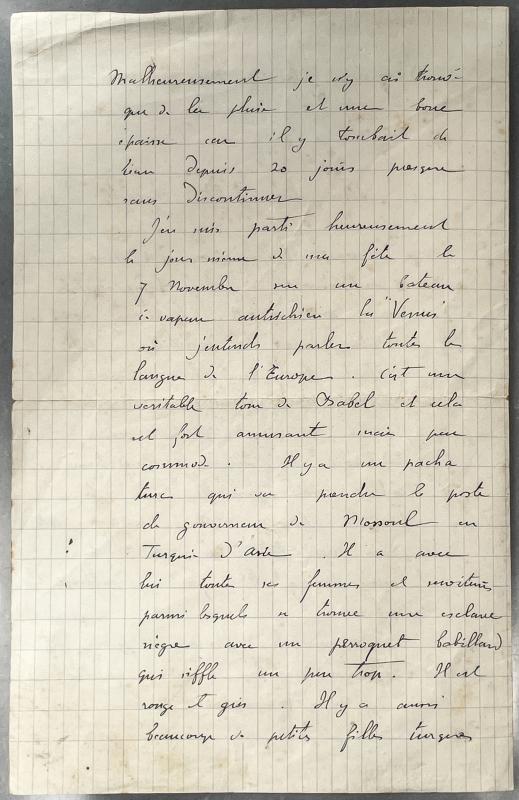 Malheureusement je n'y ai trouvé
que de la pluie et une boue
épaisse car il y tombait de
l'eau depuis 20 jours presque
sans discontinuer
J'en suis parti heureusement
le jour même de ma fête le
7 Novembre sur un bateau
à vapeur autrichien la "Venus"
où j'entends parler toutes les
langue de l'Europe. C'est une
veritable tour de Babel et cela
est fort amusant mais peu
commode. Il y a un pacha
turc qui va prendre le poste
de gouverneur de Mossoul en
Turquie d'Asie. Il a avec
lui toutes ses femmes et serviteurs
parmi lesquels se trouve une esclave
nègre avec un perroquet babillard
qui siffle un peu trop. Il est
rouge et gris. Il y a aussi
beaucoup de petites filles turques